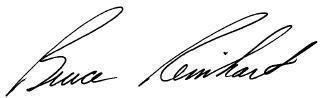 Bruce Reinhart